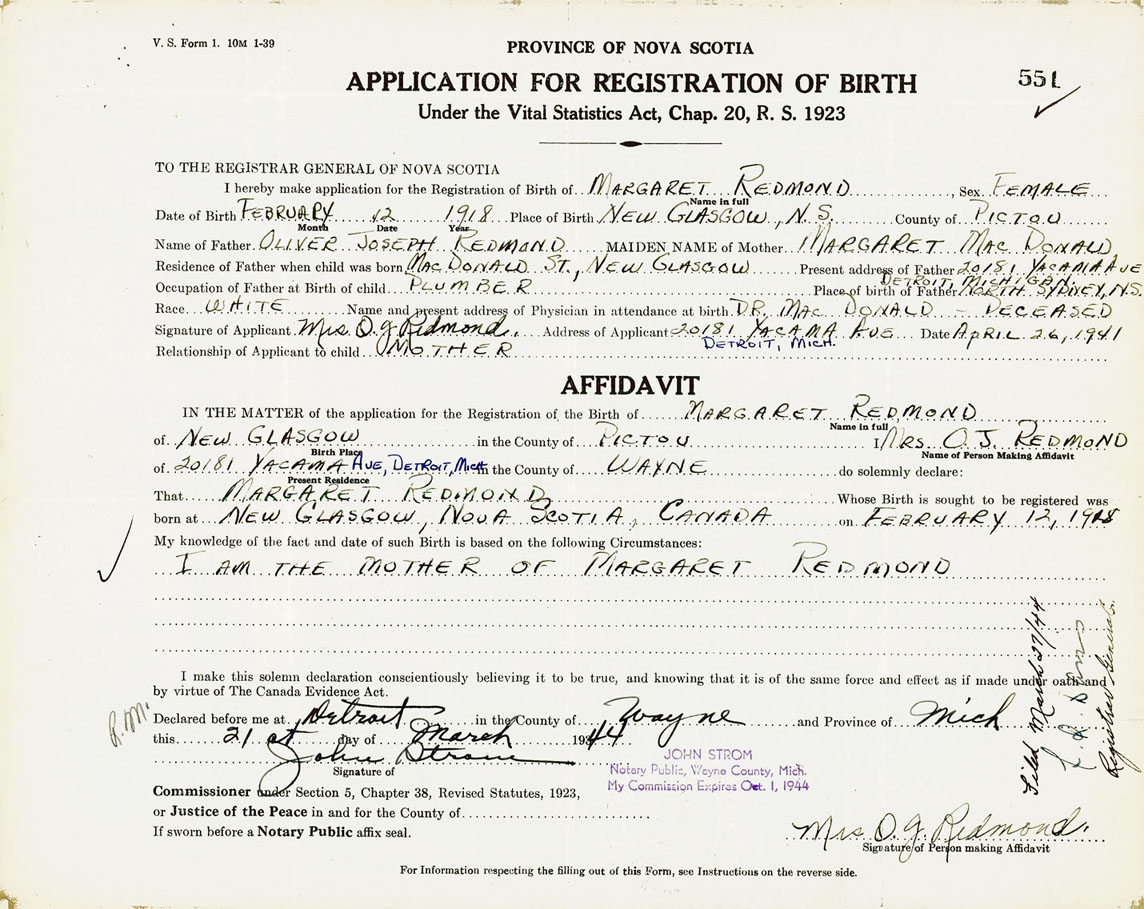 V. S. Form 1. 10M 1-39
PROVINCE OF NOVA SCOTIA
APPLICATION FOR REGISTRATION OF BIRTH
551
Under the Vital Statistics Act, Chap. 20, R. S. 1923
TO THE REGISTRAR GENERAL OF NOVA SCOTIA
I hereby make application for the Registration of Birth of MARGARET REDMOND, Sex FEMALE
Name in full
Date of Birth FEBRUARY 12 1918 Place of Birth NEW GLASGOW, N.S. County of PICTOU
Month Date Year
Name of Father OLIVER JOSEPH REDMOND MAIDEN NAME of Mother MARGARET MACDONALD
Residence of Father when child was born MACDONALD ST., NEW GLASGOW Present address of Father 20181 YACAMA AVE
DETROIT, MICHIGAN
Occupation of Father at Birth of child PLUMBER Place of birth of Father NORTH SYDNEY, N.S.
Race WHITE Name and present address of Physician in attendance at birth DR. MACDONALD - DECEASED
Signature of Applicant Mrs. O. J. Redmond. Address of Applicant 20181 YACAMA AVE Date APRIL 26, 1941
DETROIT, MICH.
Relationship of Applicant to child MOTHER
AFFIDAVIT
IN THE MATTER of the application for the Registration of the Birth of MARGARET REDMOND
Name in full
of NEW GLASGOW in the County of PICTOU I MRS. O. J. REDMOND
Birth Place Name of Person Making Affidavit
of 20181 YACAMA AVE, DETROIT, MICH. in the County of WAYNE do solemnly declare:
Present Residence
That MARGARET REDMOND Whose Birth is sought to be registered was
born at NEW GLASGOW, NOVA SCOTIA, CANADA on FEBRUARY 12, 1918
My knowledge of the fact and date of such Birth is based on the following Circumstances:
I AM THE MOTHER OF MARGARET REDMOND
I make this solemn declaration conscientiously believing it to be true, and knowing that it is of the same force and effect as if made under oath and
by virtue of The Canada Evidence Act.
R.M.
Declared before me at Detroit in the County of Wayne and Province of Mich
this 21st day of March 1944
John Strom
Signature of
JOHN STROM
Notary Public, Wayne County, Mich.
My Commission Expires Oct. 1, 1944
Commissioner under Section 5, Chapter 38, Revised Statutes, 1923,
or Justice of the Peace in and for the County of
If sworn before a Notary Public affix seal.
Filed March 27/44
Registrar General
Mrs. O. J. Redmond.
Signature of Person making Affidavit
For Information respecting the filling out of this Form, see Instructions on the reverse side.